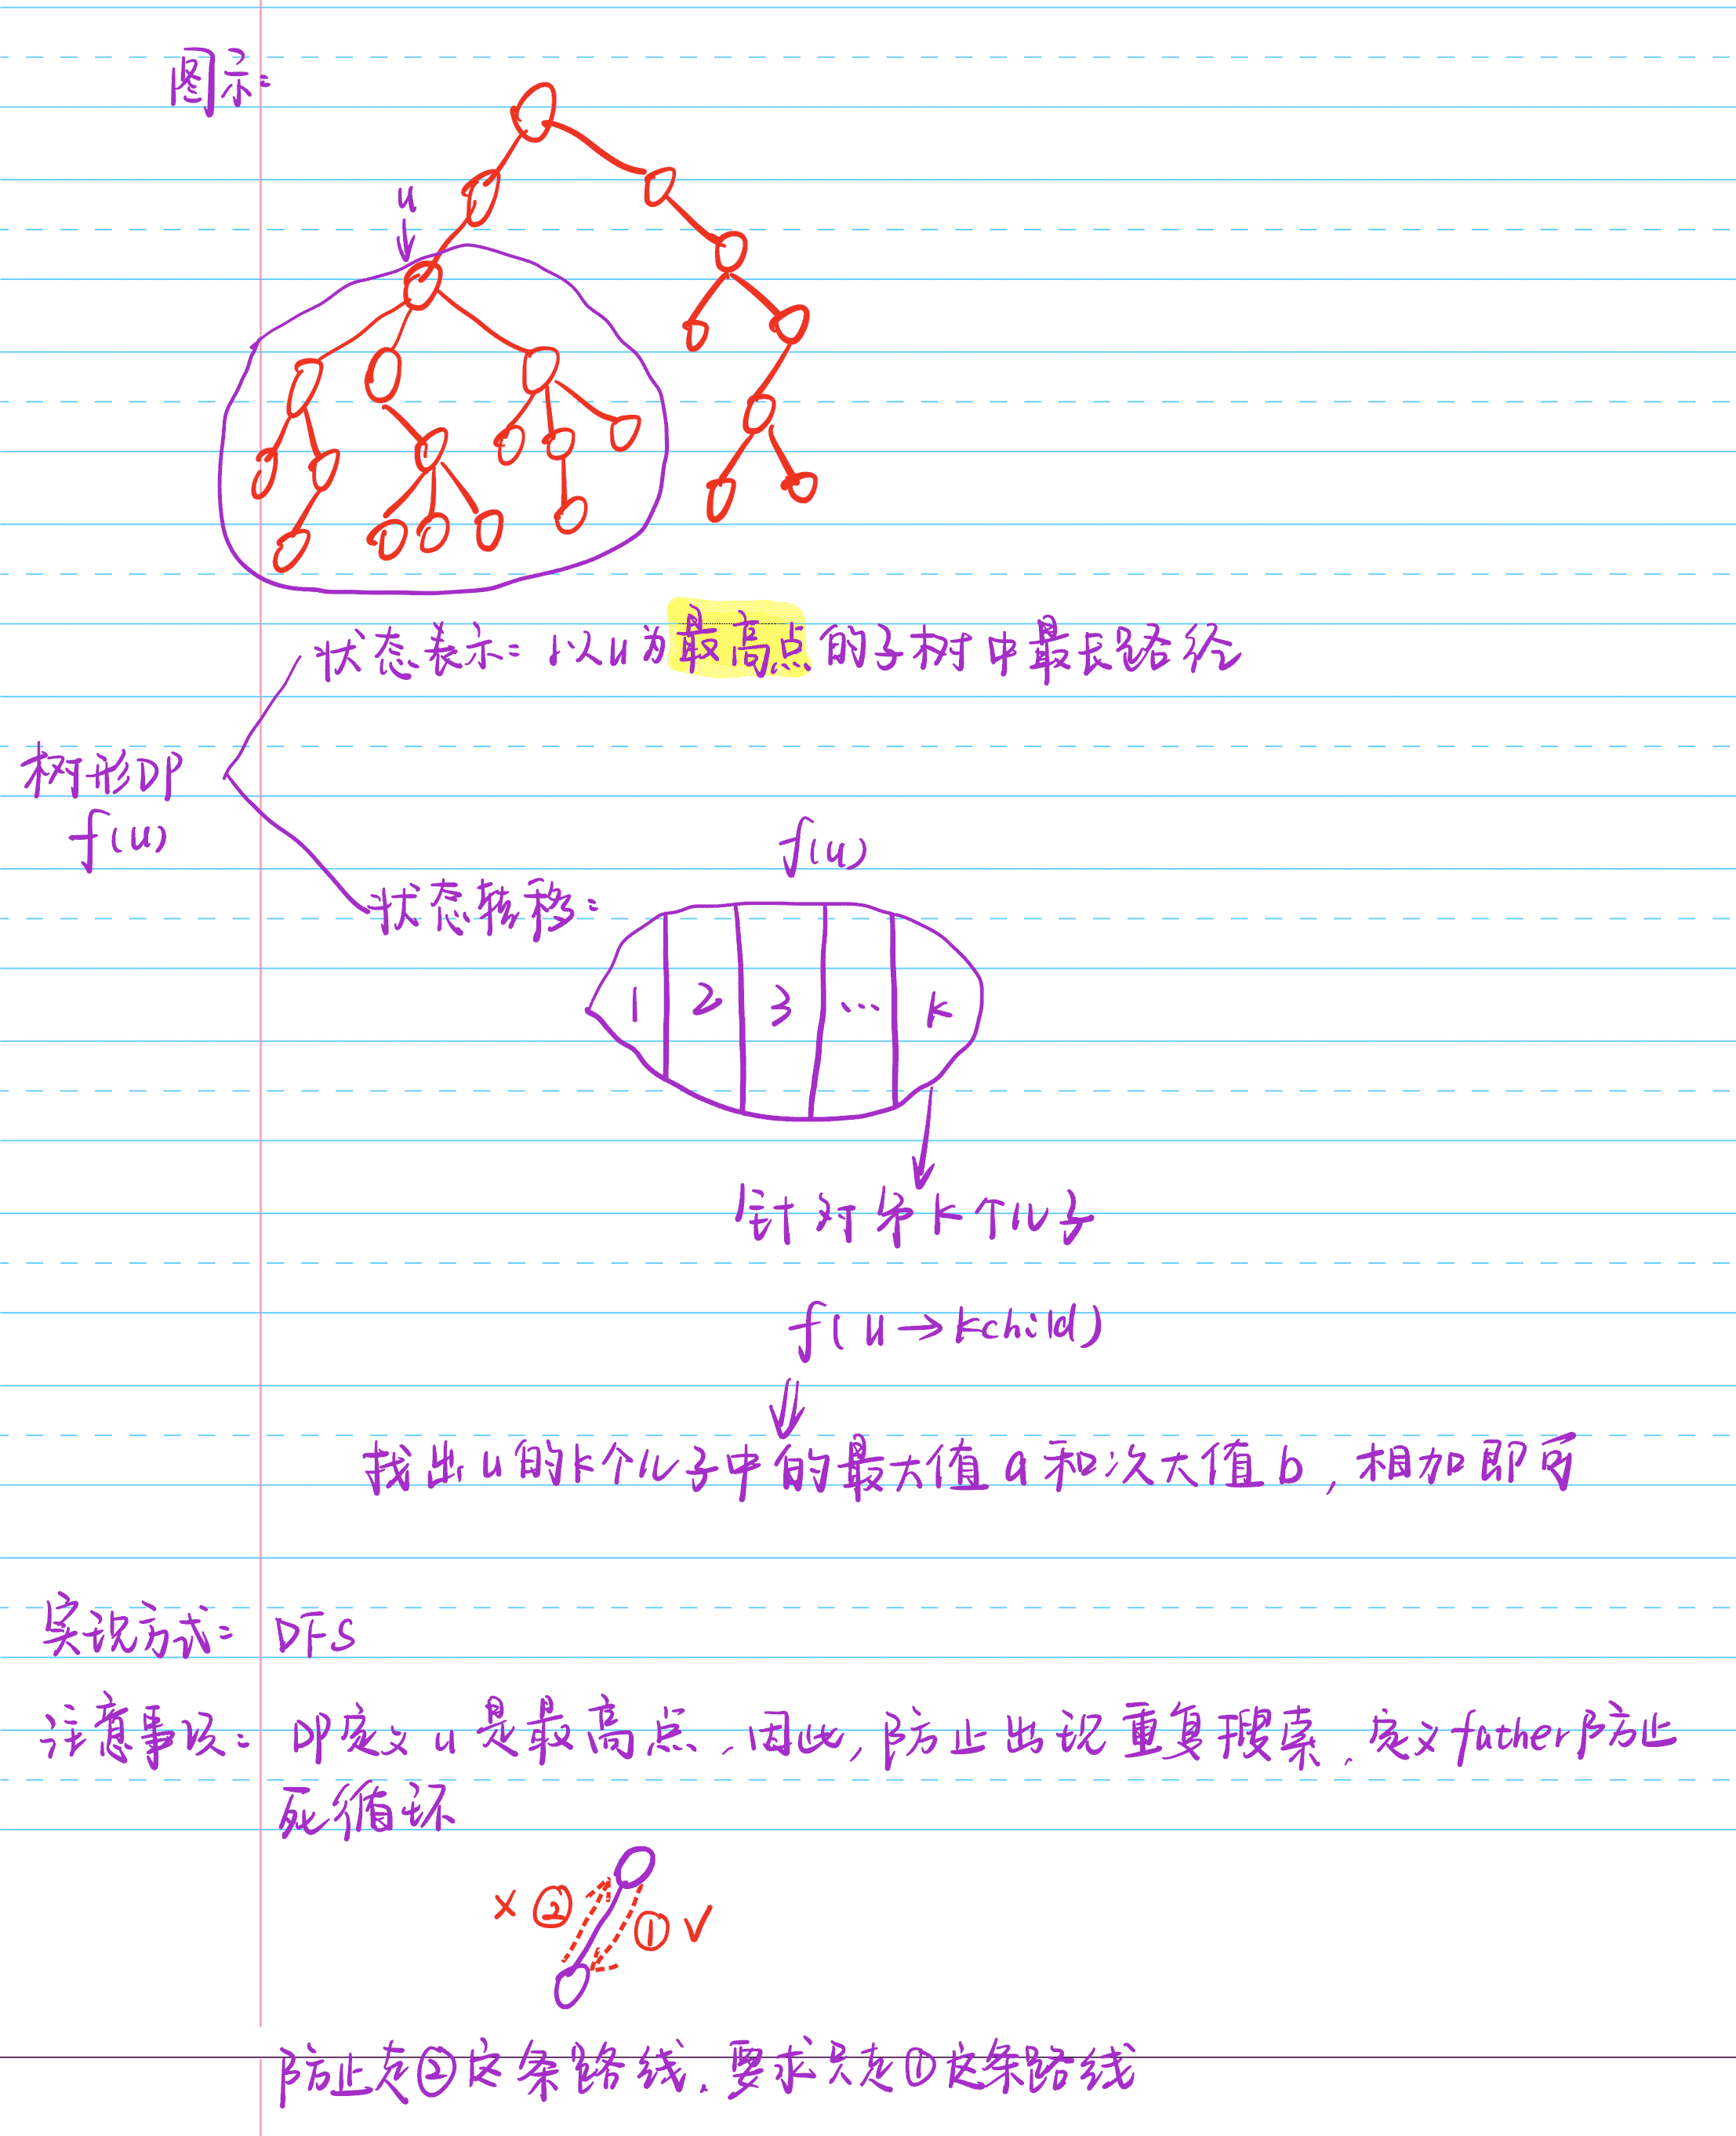 图示:
u
状态表示: 以u为最高点的子树中最长路径
树形DP
f(u)
状态转移:
f(u)
1 2 3 ... k
针对第k个儿子
f(u→kchild)
找出u的k个儿子中的最大值a和次大值b,相加即可
实现方式: DFS
注意事项: DP定义u是最高点、因此,防止出现重复搜索、定义father防止
死循环
× ② ① √
防止走②这条路线、要求只走①这条路线